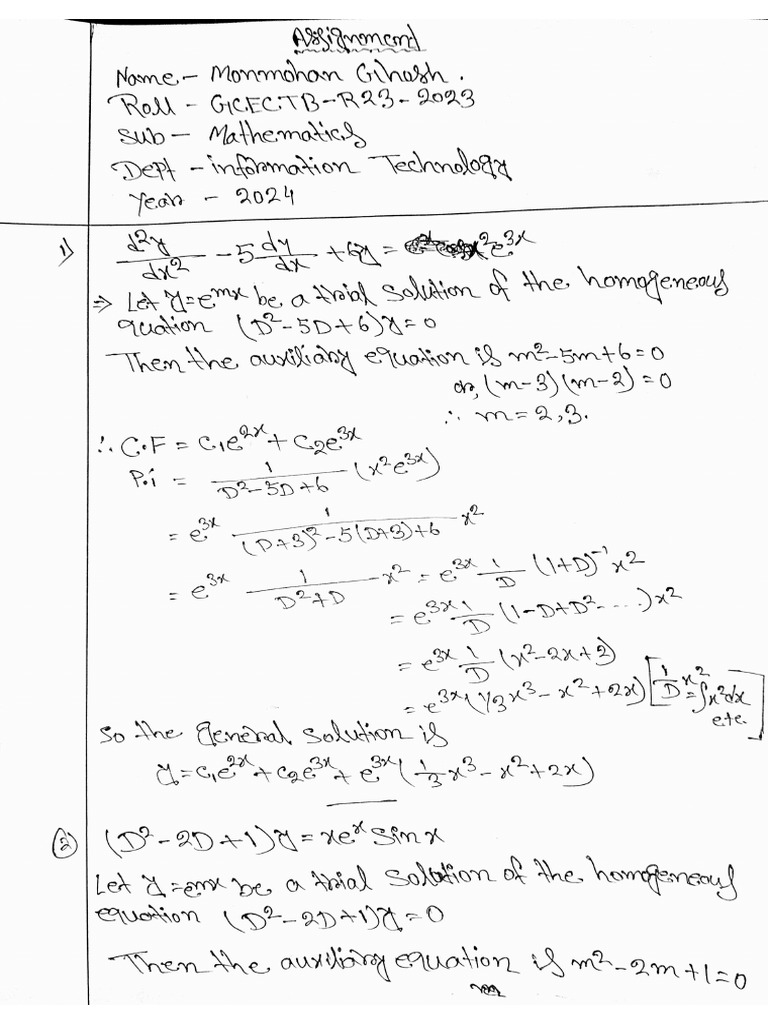 Assignment
Name - Monmohan Ghosh.
Roll - GCECTB-R23-2023
Sub - Mathematics
Dept - information Technology
Year - 2024
1) d²y/dx² - 5 dy/dx + 6y = x²e^3x
⇒ Let y=e^mx be a trial solution of the homogeneous
quation (D²-5D+6)y=0
Then the auxiliary equation is m²-5m+6=0
or, (m-3)(m-2)=0
∴ m=2,3.
∴ C.F = C₁e^2x + C₂e^3x
P.i = 1/(D²-5D+6) (x²e^3x)
= e^3x 1/((D+3)²-5(D+3)+6) x²
= e^3x 1/(D²+D) x² = e^3x 1/D (1+D)^-1 x²
= e^3x 1/D (1-D+D²-...)x²
= e^3x 1/D (x²-2x+2)
= e^3x (1/3x³-x²+2x) [1/D x² = ∫x²dx etc.]
So the general solution is
y=C₁e^2x+C₂e^3x+e^3x(1/3x³-x²+2x)
② (D²-2D+1)y=xe^x sinx
Let y=emx be a trial solution of the homogeneous
equation (D²-2D+1)y=0
Then the auxiliary equation is m²-2m+1=0